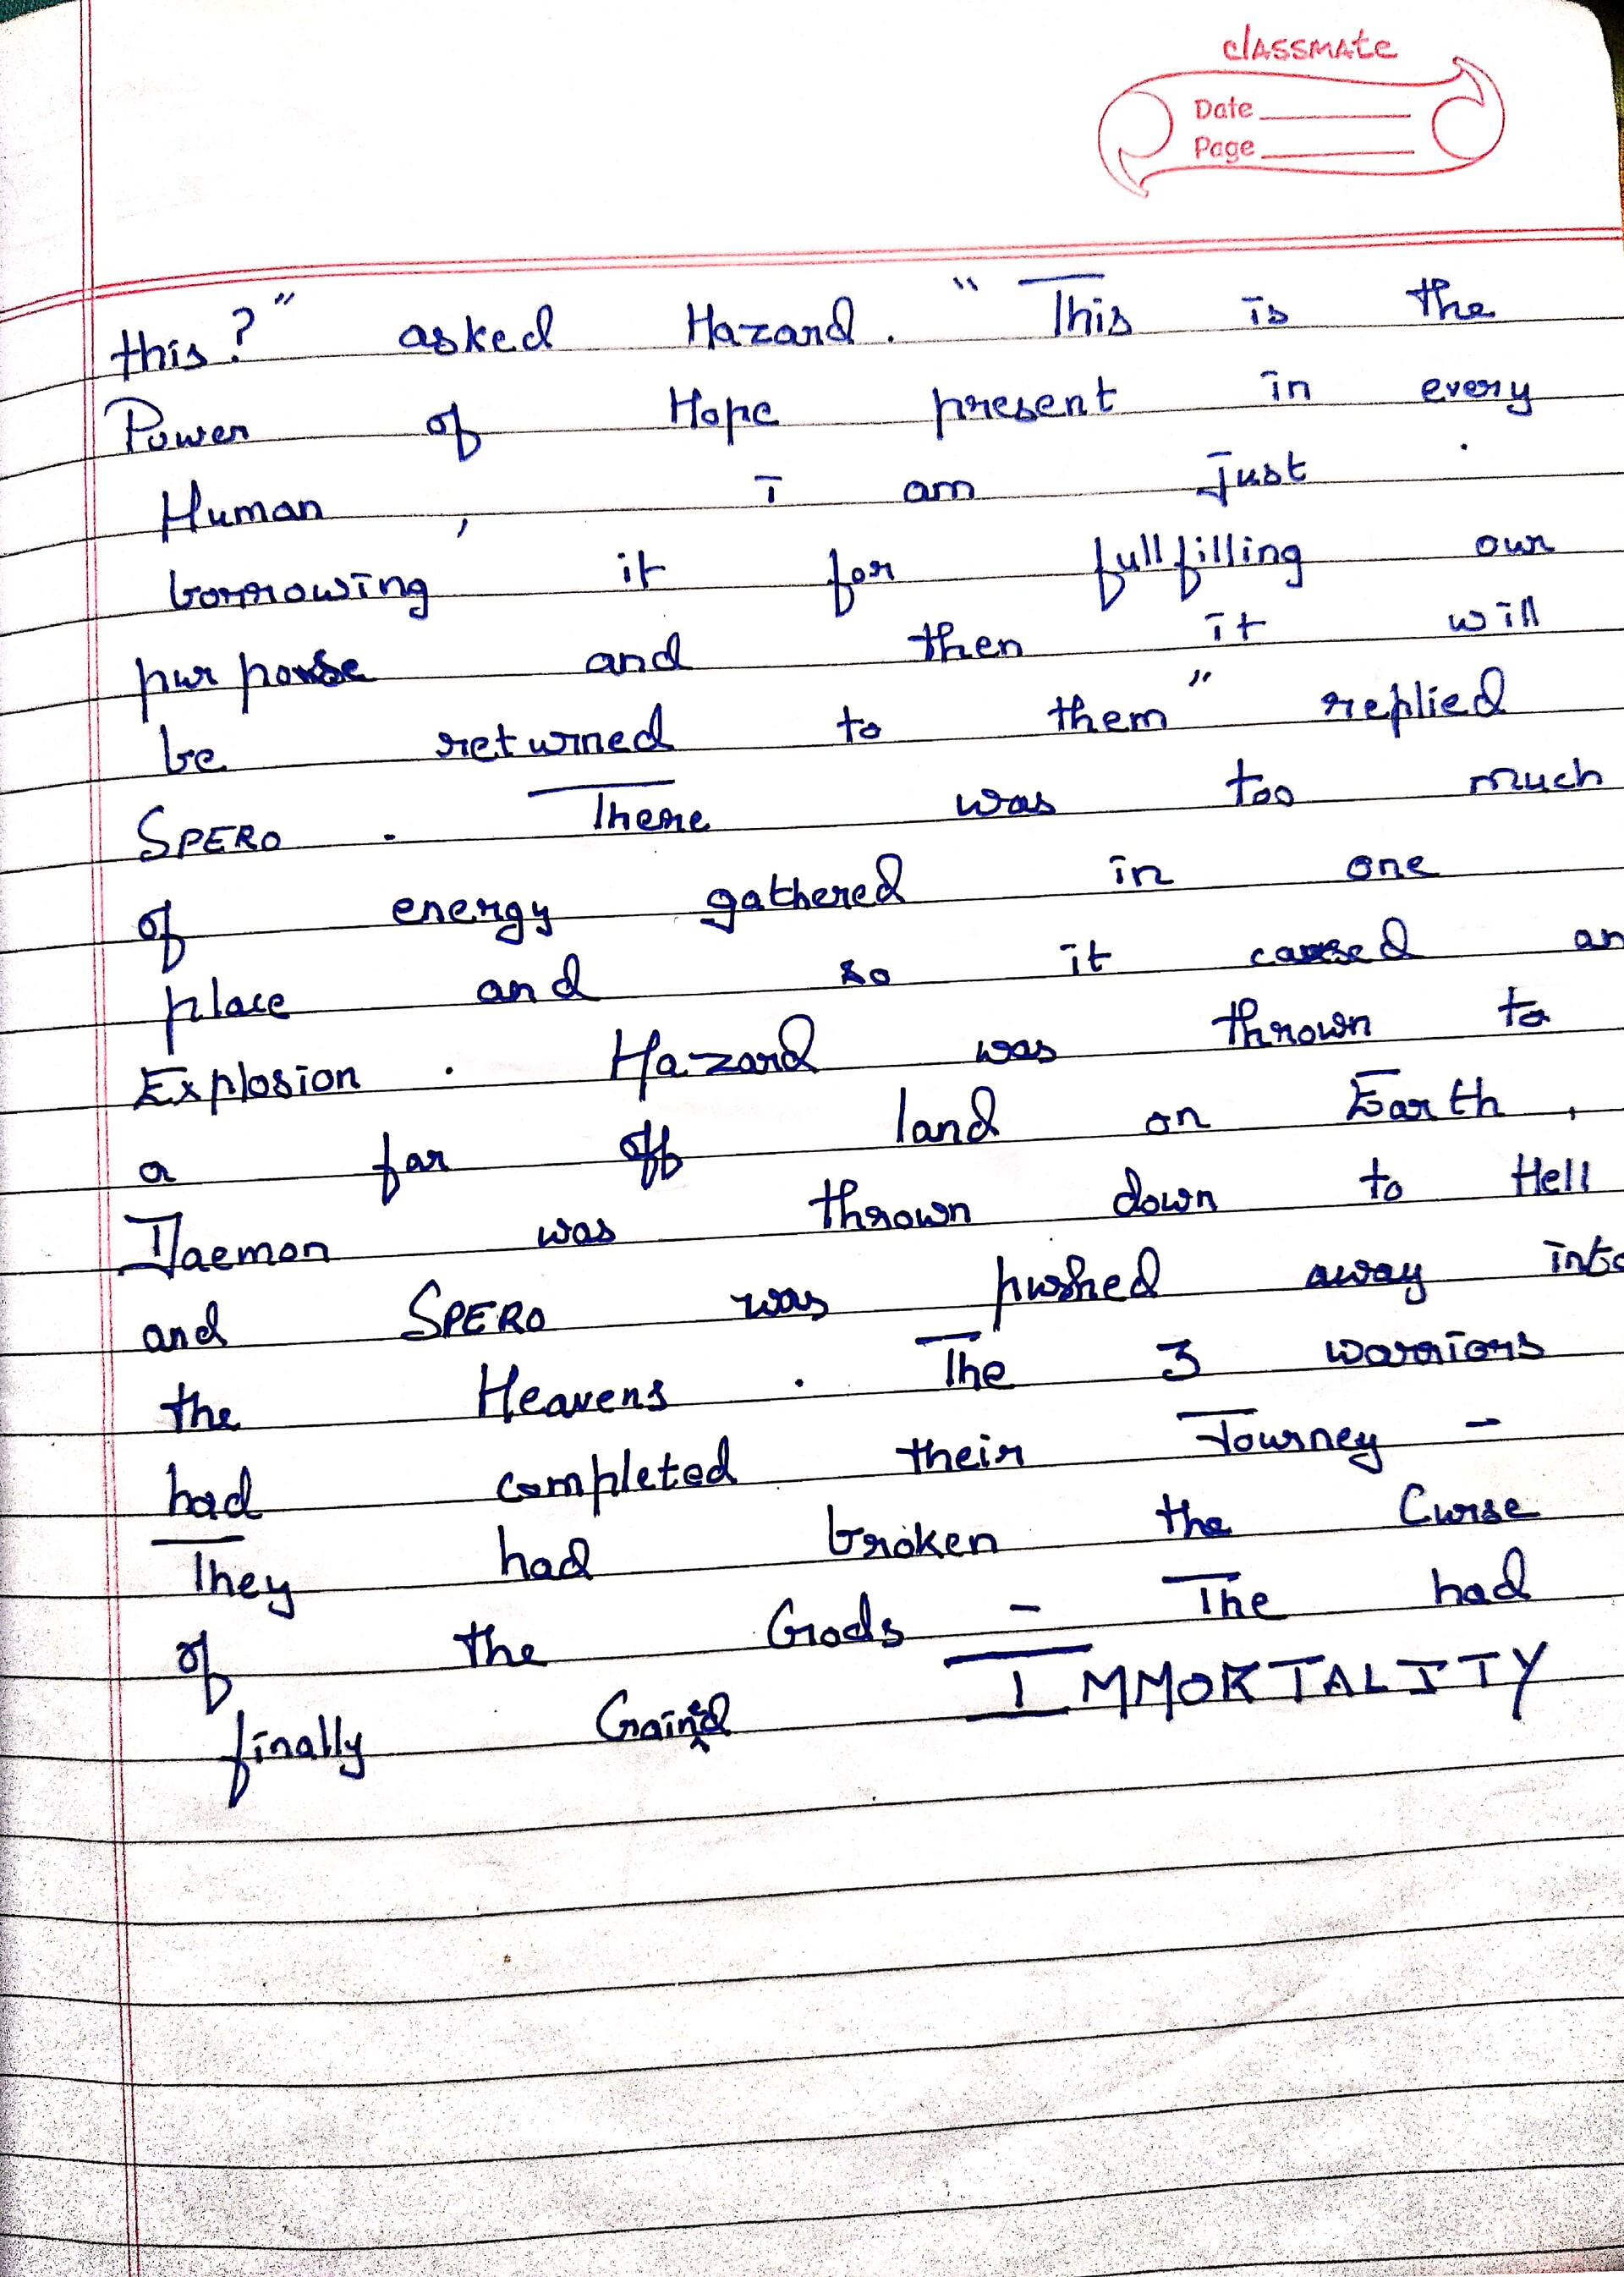 classmate
Date
Page
this?" asked Hazard. "This is the
Power of Hope present in every
Human, I am just
borrowing it for fullfilling our
purpose and then it will
be returned to them" replied
SPERO. There was too much
of energy gathered in one
place and so it caused an
Explosion. Hazard was thrown to
a far off land on Earth,
Daemon was thrown down to Hell
and SPERO was pushed away into
the Heavens. The 3 warriors
had completed their Journey -
They had broken the Curse
of the Gods - The had
finally Gained IMMORTALITY